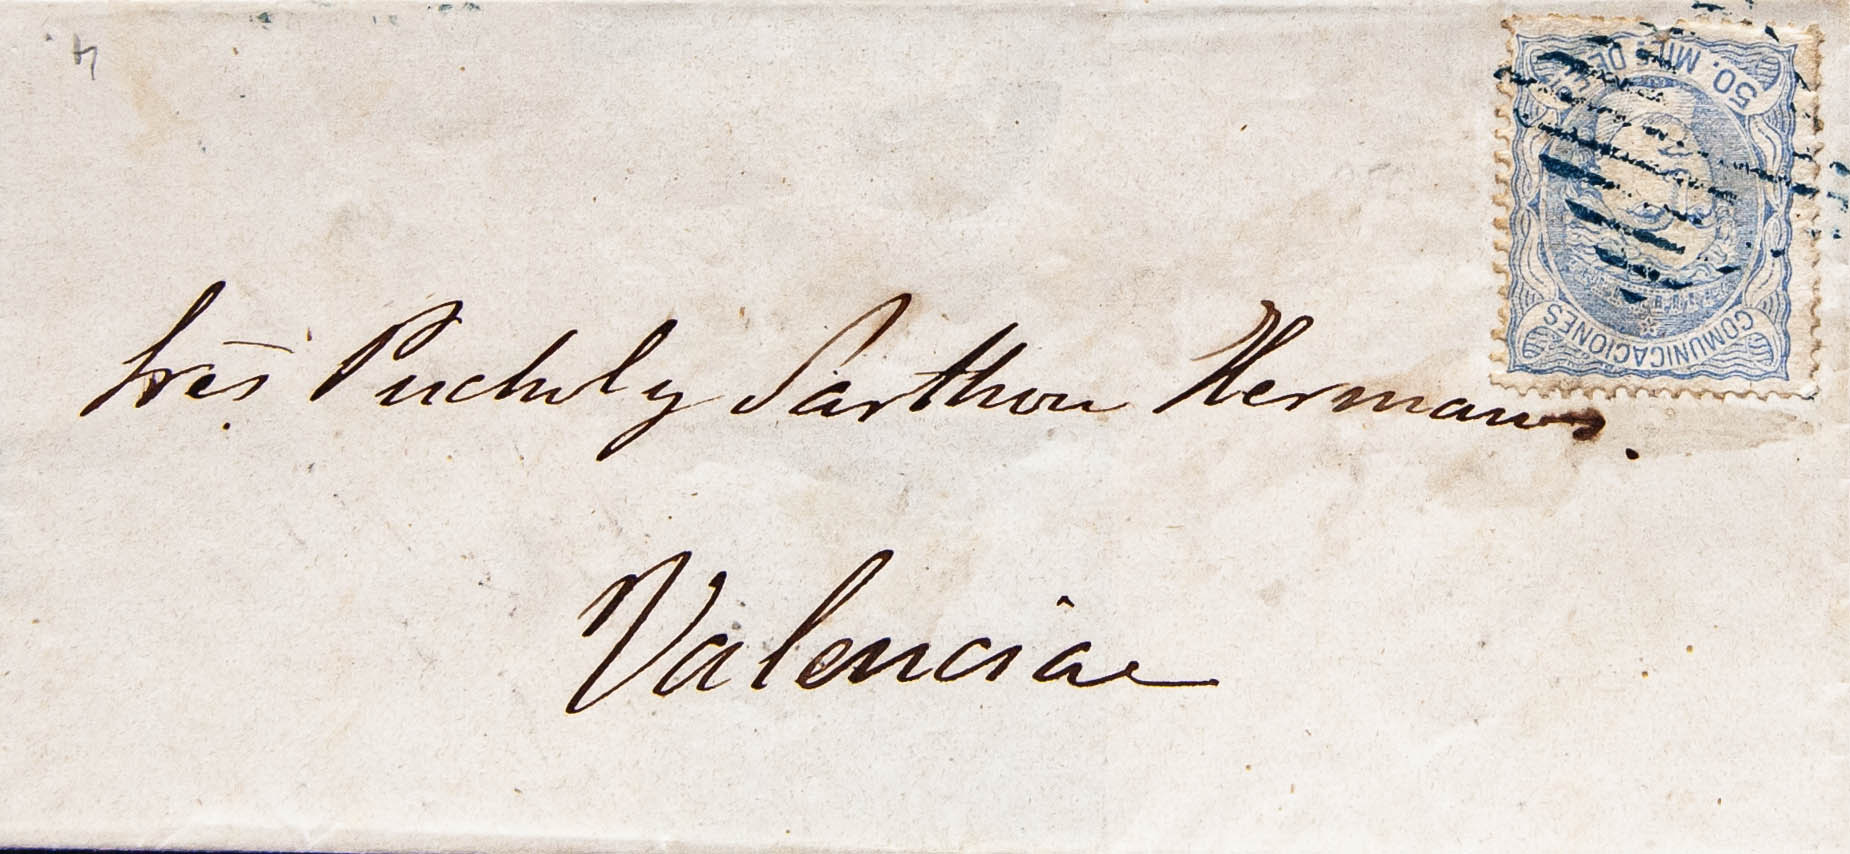 50. MILS DE ESC
COMUNICACIONES
Sres Puchol y Sarthou Hermanos.
Valencia